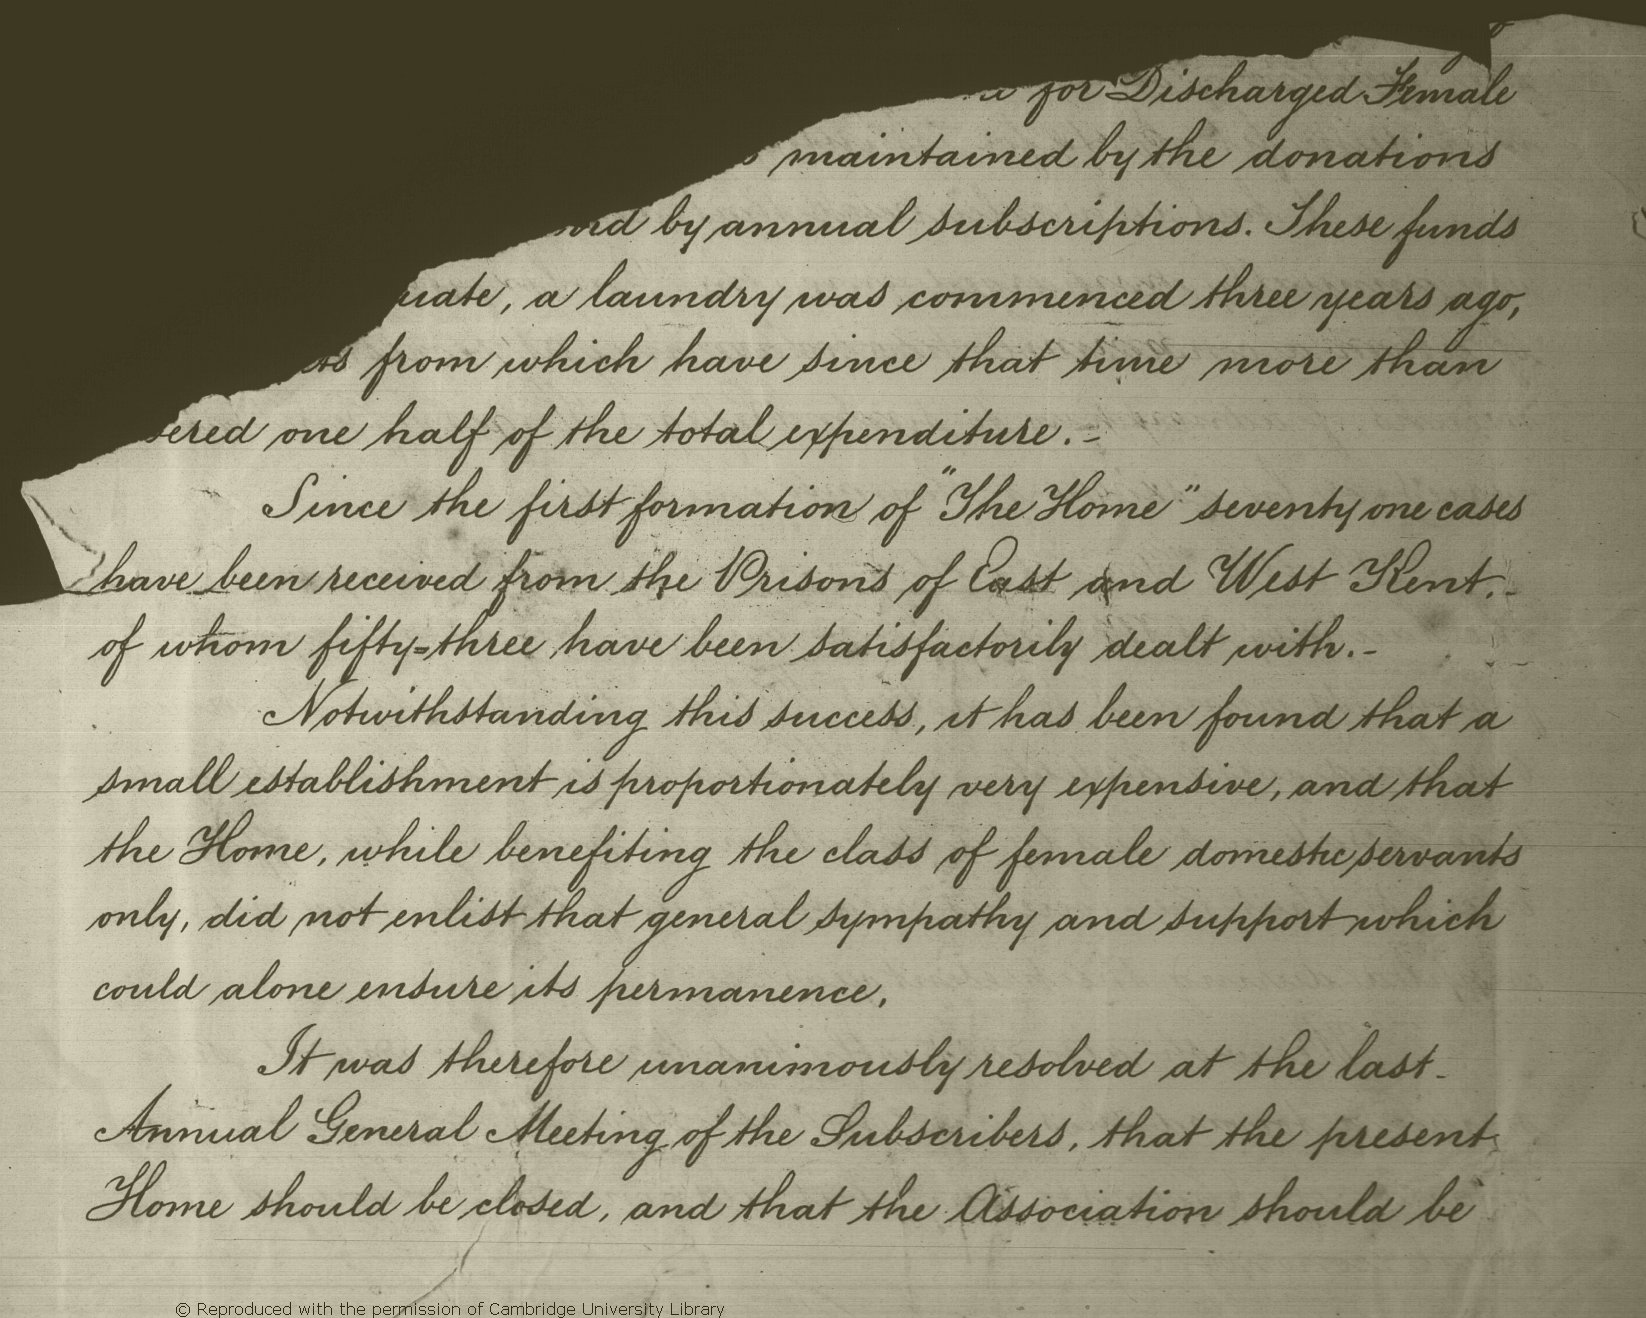 for Discharged Female
maintained by the donations
by annual subscriptions. These funds
a laundry was commenced three years ago,
from which have since that time more than
one half of the total expenditure. -
Since the first formation of "The Home" seventy one cases
have been received from the Prisons of East and West Kent. -
of whom fifty=three have been satisfactorily dealt with. -
Notwithstanding this success, it has been found that a
small establishment is proportionately very expensive, and that
the Home, while benefiting the class of female domestic servants
only, did not enlist that general sympathy and support which
could alone ensure its permanence.
It was therefore unanimously resolved at the last -
Annual General Meeting of the Subscribers, that the present
Home should be closed, and that the Association should be
© Reproduced with the permission of Cambridge University Library